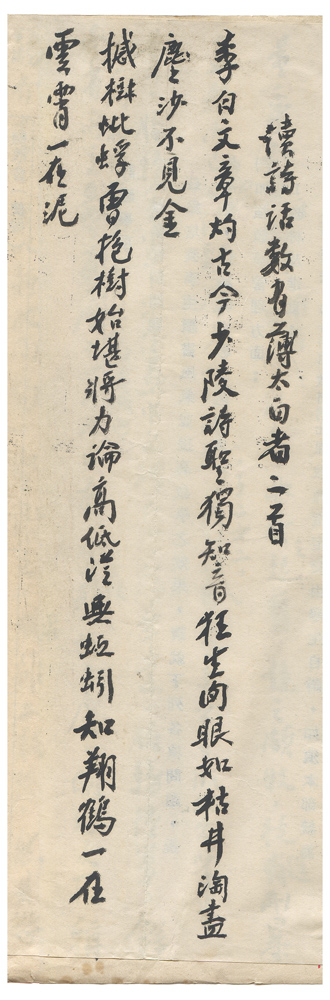 讀詩話數有薄太白者二首
李白文章灼古今少陵詩聖獨知音狂生肉眼如枯井淘盡
塵沙不見金
撼樹蚍蜉曾抱樹始堪將力論高低從無蚯蚓知翔鶴一在
雲霄一在泥